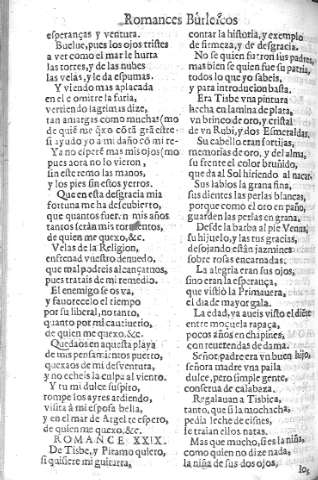 Romances Burlescos
esperanças y ventura.
Buelue, pues los ojos tristes
a ver como el mar le hurta
las torres, y de las nubes
las velas, y le da espumas.
Y viendo mas aplacada
en el e omitre la furia,
vertiendo lagrimas dize,
tan amargas como muchas (mo
de quiē me q̄xo cō tā grā estre
si ayudo yo a mi daño cō mi re-
Ya no esperē mas mis ojos (mo
pues aora no lo vieron,
sin este remo las manos,
y los pies sin estos yerros.
Que en esta desgracia mia
fortuna me ha descubierto,
que quantos fuer n mis años
tantos serán mis tormentos,
de quien me quexo, &c.
Velas de la Religion,
enfrenad vuestro denuedo,
que mal podreis alcançarnos,
pues tratais de mi remedio.
El enemigo se os va,
y fauorecelo el tiempo
por su liberal, no tanto,
quanto por mi cautiuerio,
de quien me quexo. &c.
Quedaos en aquesta playa
de mis pensamientos puerto,
quexaos de mi desventura,
y no echeis la culpa al viento.
Y tu mi dulce suspiro,
rompe los ayres ardiendo,
visita á mi esposa bella,
y en el mar de Argel te espero,
de quien me quexo, &c.
ROMANCE XXIX.
De Tisbe, y Piramo quiero,
si quisiere mi guitarra,
contar la historia, y exemplo
de firmeza, y de desgracia.
No se quien fueron sus padres,
mas bien se quien fue su patria,
todos lo que yo sabeis,
y para introducion basta.
Era Tisbe vna pintura
hecha en lamina de plata,
vn brinco de oro, y cristal
de vn Rubi, y dos Esmeraldas.
Su cabello eran sortijas,
memorias de oro, y del alma,
su frente el color bruñido,
que da al Sol hiriendo al nacar.
Sus labios la grana fina,
sus dientes las perlas blancas,
porque como el oro en paño,
guarden las perlas en grana.
Desde la barba al pie Venus,
su hijuelo, y las tus gracias,
deshojando están jazmines
sobre rosas encarnadas.
La alegria eran sus ojos,
sino eran la esperança,
que vistió la Primauera,
el dia de mayor gala.
La edad, ya aueis visto el diēte
entre moçuela rapaça,
pocos años en chapines,
con reuerendas de dama.
Señor padre era vn buen hijo,
señora madre vna paila
dulce, pero simple gente,
conserua de calabaza.
Regalauan a Tisbica,
tanto, que si la mochacha
pedia leche de cisnes,
le traian ellos natas.
Mas que mucho, si es la niña,
como quien no dize nada,
la niña de sus dos ojos,
los